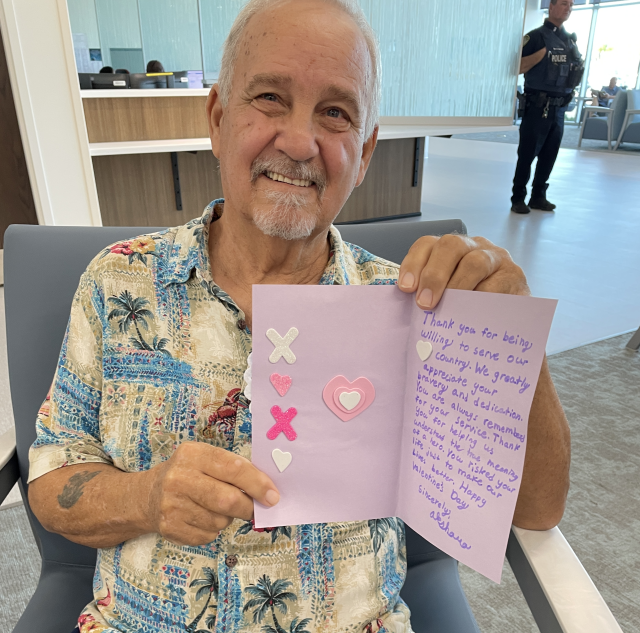 POLICE
Thank you for being
willing to serve our
country. We greatly
appreciate your
bravery and dedication.
You are always remembered
for your service. Thank
you for helping us
understand the true meaning
of a hero. You risked your
life just to make our
lives better. Happy
Valentine's Day
Sincerely